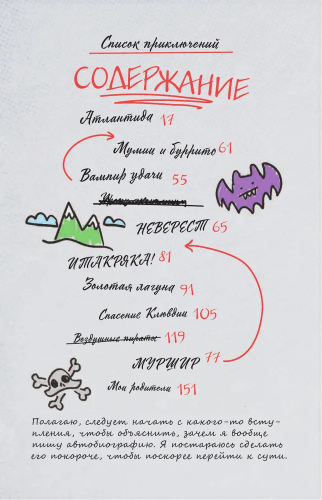 Список приключений
СОДЕРЖАНИЕ
Атлантида 17
Мумии и буррито 61
Вампир удачи 55
НЕВЕРЕСТ 65
ИТАКРЯКА! 81
Золотая лагуна 91
Спасение Клювви 105
Воздушные пираты 119
МУРШИР 77
Мои родители 151
Полагаю, следует начать с какого-то всту-
пления, чтобы объяснить, зачем я вообще
пишу автобиографию. Я постараюсь сделать
его покороче, чтобы поскорее перейти к сути.